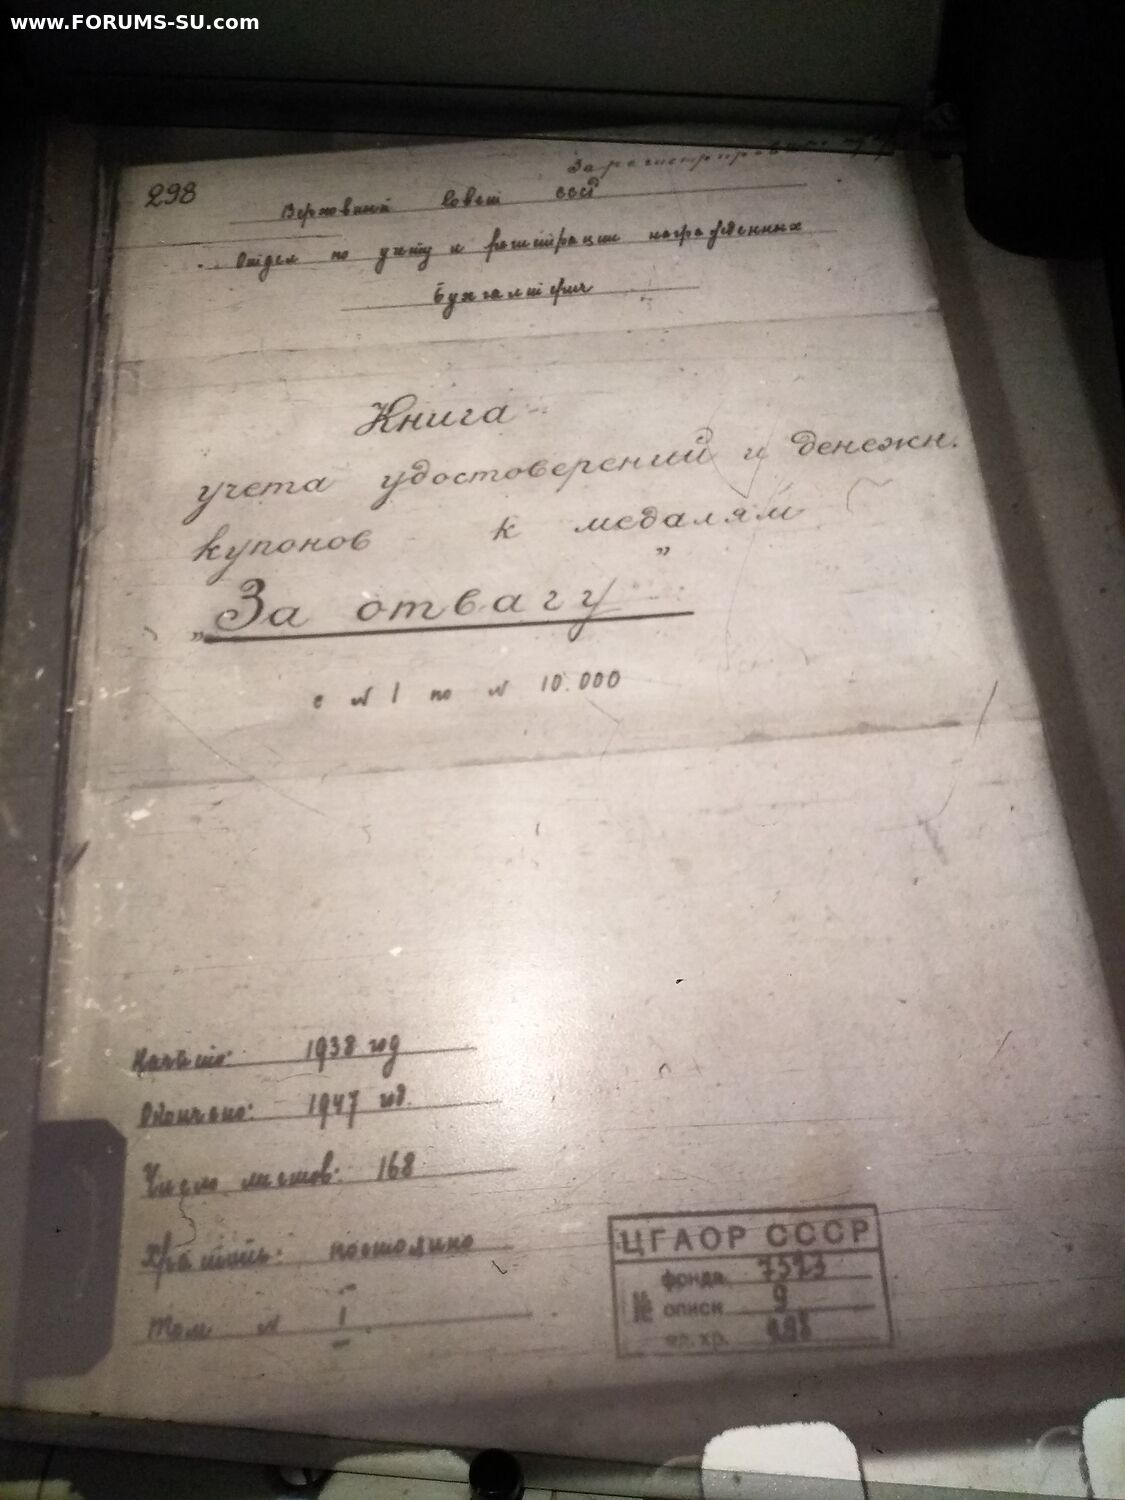 www.FORUMS-SU.com
298
Верховный Совет СССР
Отдел по учету и регистрации награжденных
Бухгалтерия
Книга
учета удостоверений и денежн.
купонов к медалям
„За отвагу"
с № 1 по № 10.000
Начато: 1938 год
Окончено: 1947 год.
Число листов: 168
Хранить: постоянно
Том № 1
ЦГАОР СССР
фонда 7523
№ описи 9
ед. хр. 298